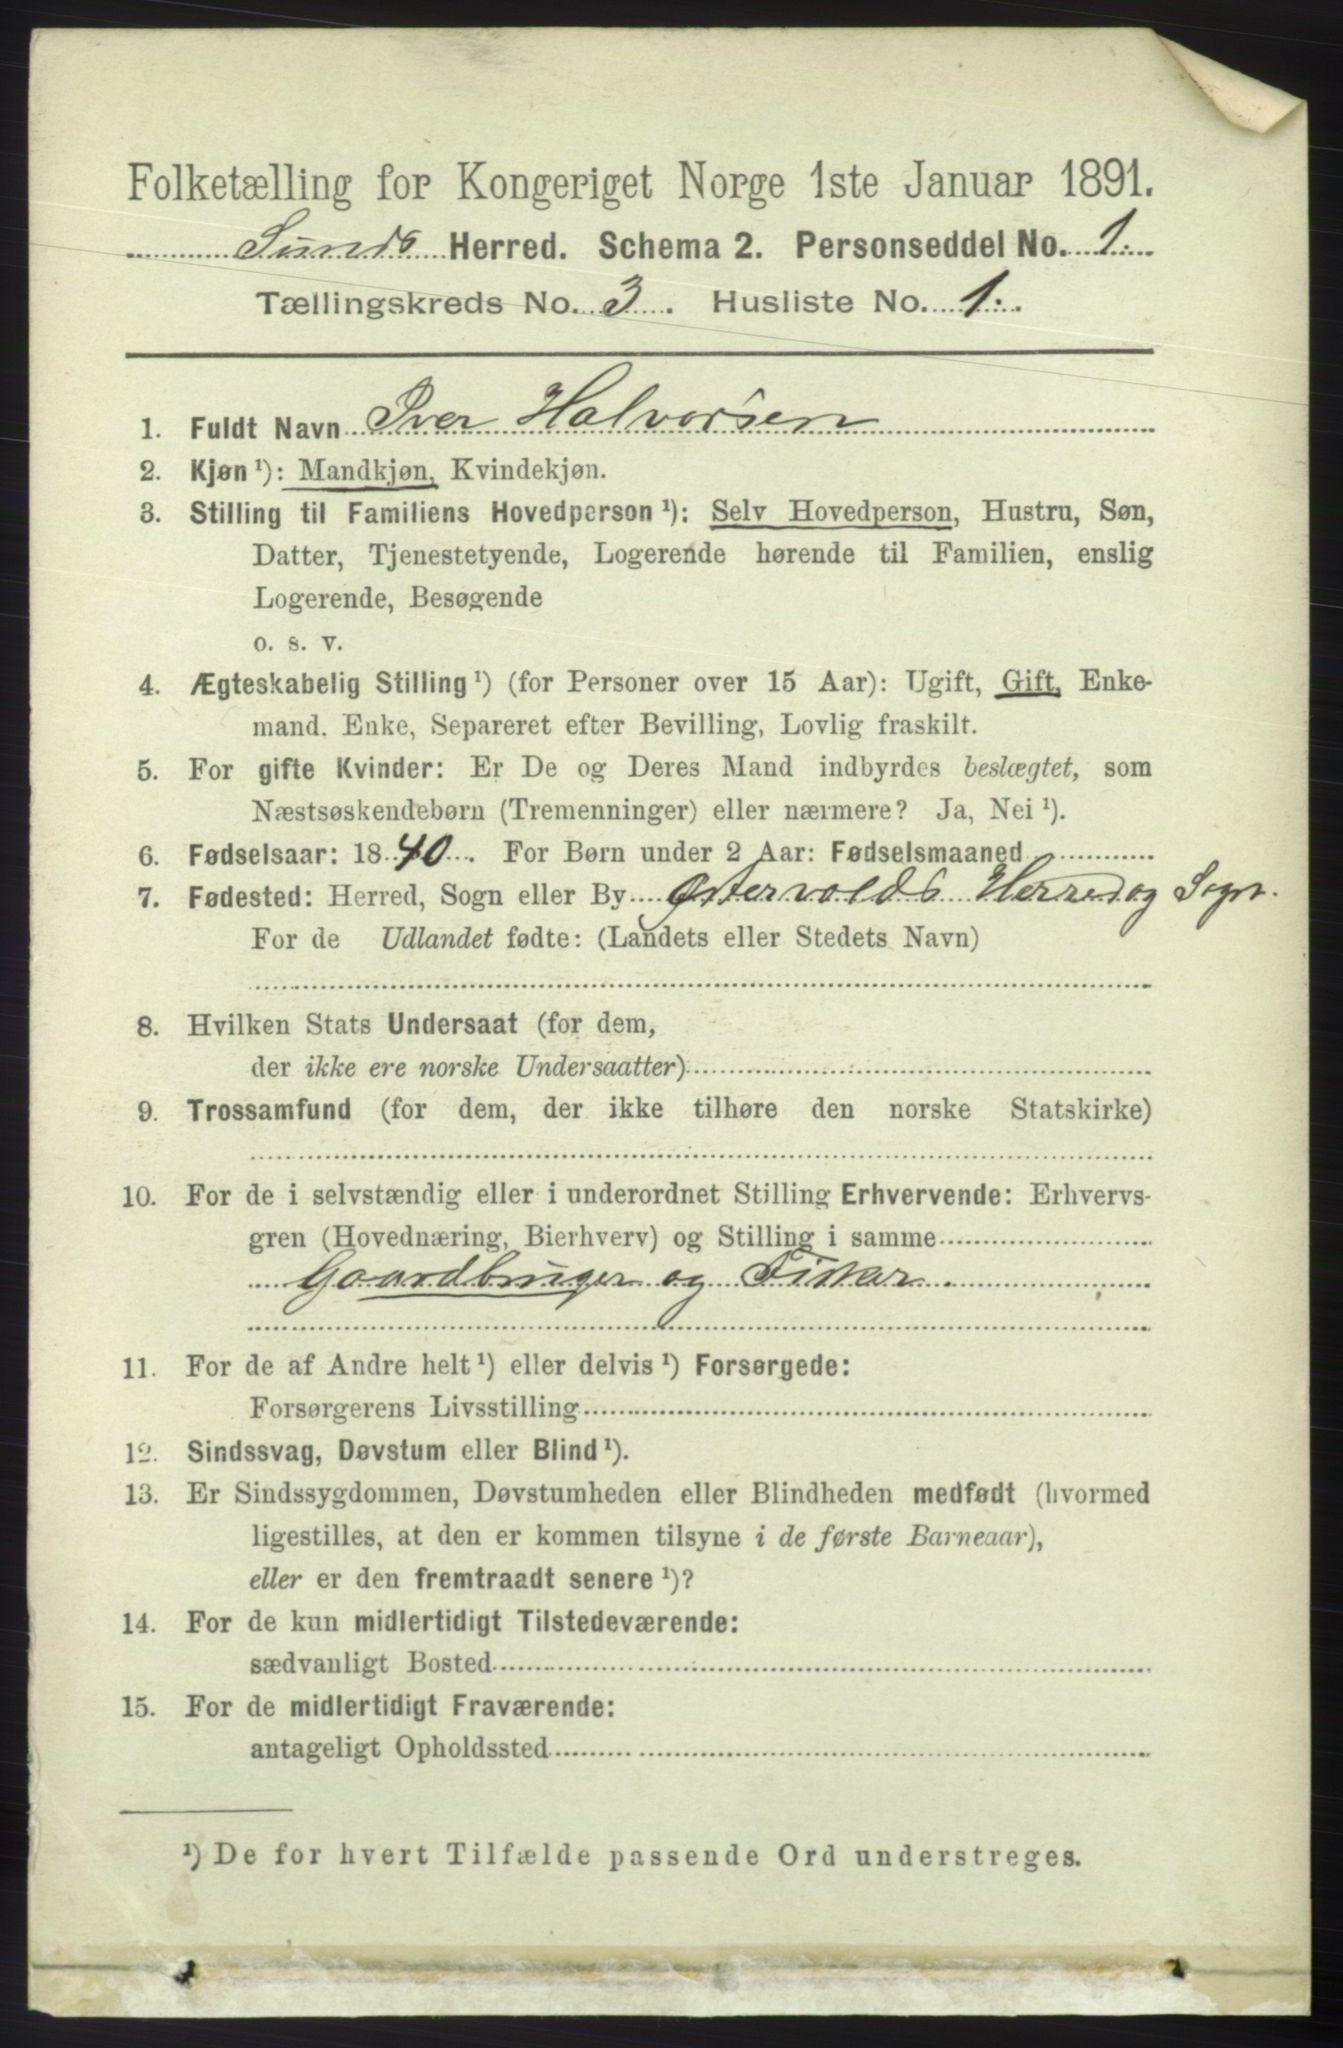 Folketælling for Kongeriget Norge 1ste Januar 1891.
Sunds Herred. Schema 2. Personseddel No. 1.
Tællingskreds No. 3. Husliste No. 1.
1. Fuldt Navn Iver Halvorsen
2. Kjøn ¹): Mandkjøn, Kvindekjøn.
3. Stilling til Familiens Hovedperson ¹): Selv Hovedperson, Hustru, Søn,
Datter, Tjenestetyende, Logerende hørende til Familien, enslig
Logerende, Besøgende
o. s. v.
4. Ægteskabelig Stilling ¹) (for Personer over 15 Aar): Ugift, Gift, Enke-
mand, Enke, Separeret efter Bevilling, Lovlig fraskilt.
5. For gifte Kvinder: Er De og Deres Mand indbyrdes beslægtet, som
Næstsøskendebørn (Tremenninger) eller nærmere? Ja, Nei ¹).
6. Fødselsaar: 1840. For Børn under 2 Aar: Fødselsmaaned
7. Fødested: Herred, Sogn eller By Østervolds Herred og Sogn.
For de Udlandet fødte: (Landets eller Stedets Navn)
8. Hvilken Stats Undersaat (for dem,
der ikke ere norske Undersaatter)
9. Trossamfund (for dem, der ikke tilhøre den norske Statskirke)
10. For de i selvstændig eller i underordnet Stilling Erhvervende: Erhvervs-
gren (Hovednæring, Bierhverv) og Stilling i samme
Gaardbruger og Fisker.
11. For de af Andre helt ¹) eller delvis ¹) Forsørgede:
Forsørgerens Livsstilling
12. Sindssvag, Døvstum eller Blind ¹).
13. Er Sindssygdommen, Døvstumheden eller Blindheden medfødt (hvormed
ligestilles, at den er kommen tilsyne i de første Barneaar),
eller er den fremtraadt senere ¹)?
14. For de kun midlertidigt Tilstedeværende:
sædvanligt Bosted
15. For de midlertidigt Fraværende:
antageligt Opholdssted
¹) De for hvert Tilfælde passende Ord understreges.